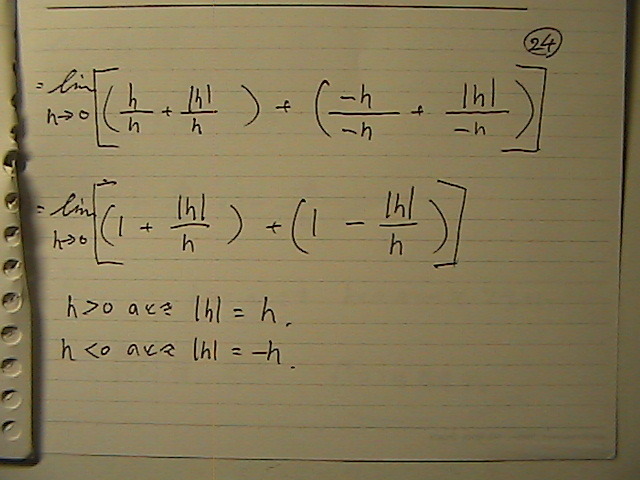 24
= lim h→0 [ ( h/h + |h|/h ) + ( -h/-h + |h|/-h ) ]
= lim h→0 [ ( 1 + |h|/h ) + ( 1 - |h|/h ) ]
h>0 |h| = h.
h<0 |h| = -h.